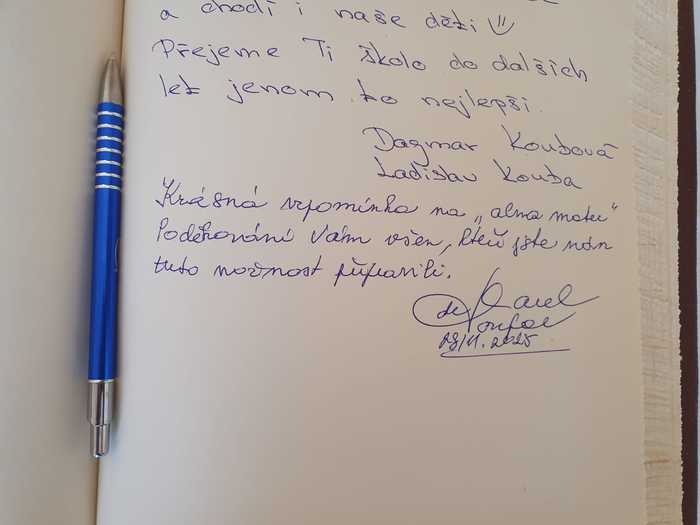 a chodí i naše děti
Přejeme Ti školo do dalších
let jenom to nejlepší.
Dagmar Koubová
Ladislav Kouba
Krásná vzpomínka na „alma mater“
Poděkování Vám všem, kteří jste nám
tuto možnost připravili.
Karel
2025